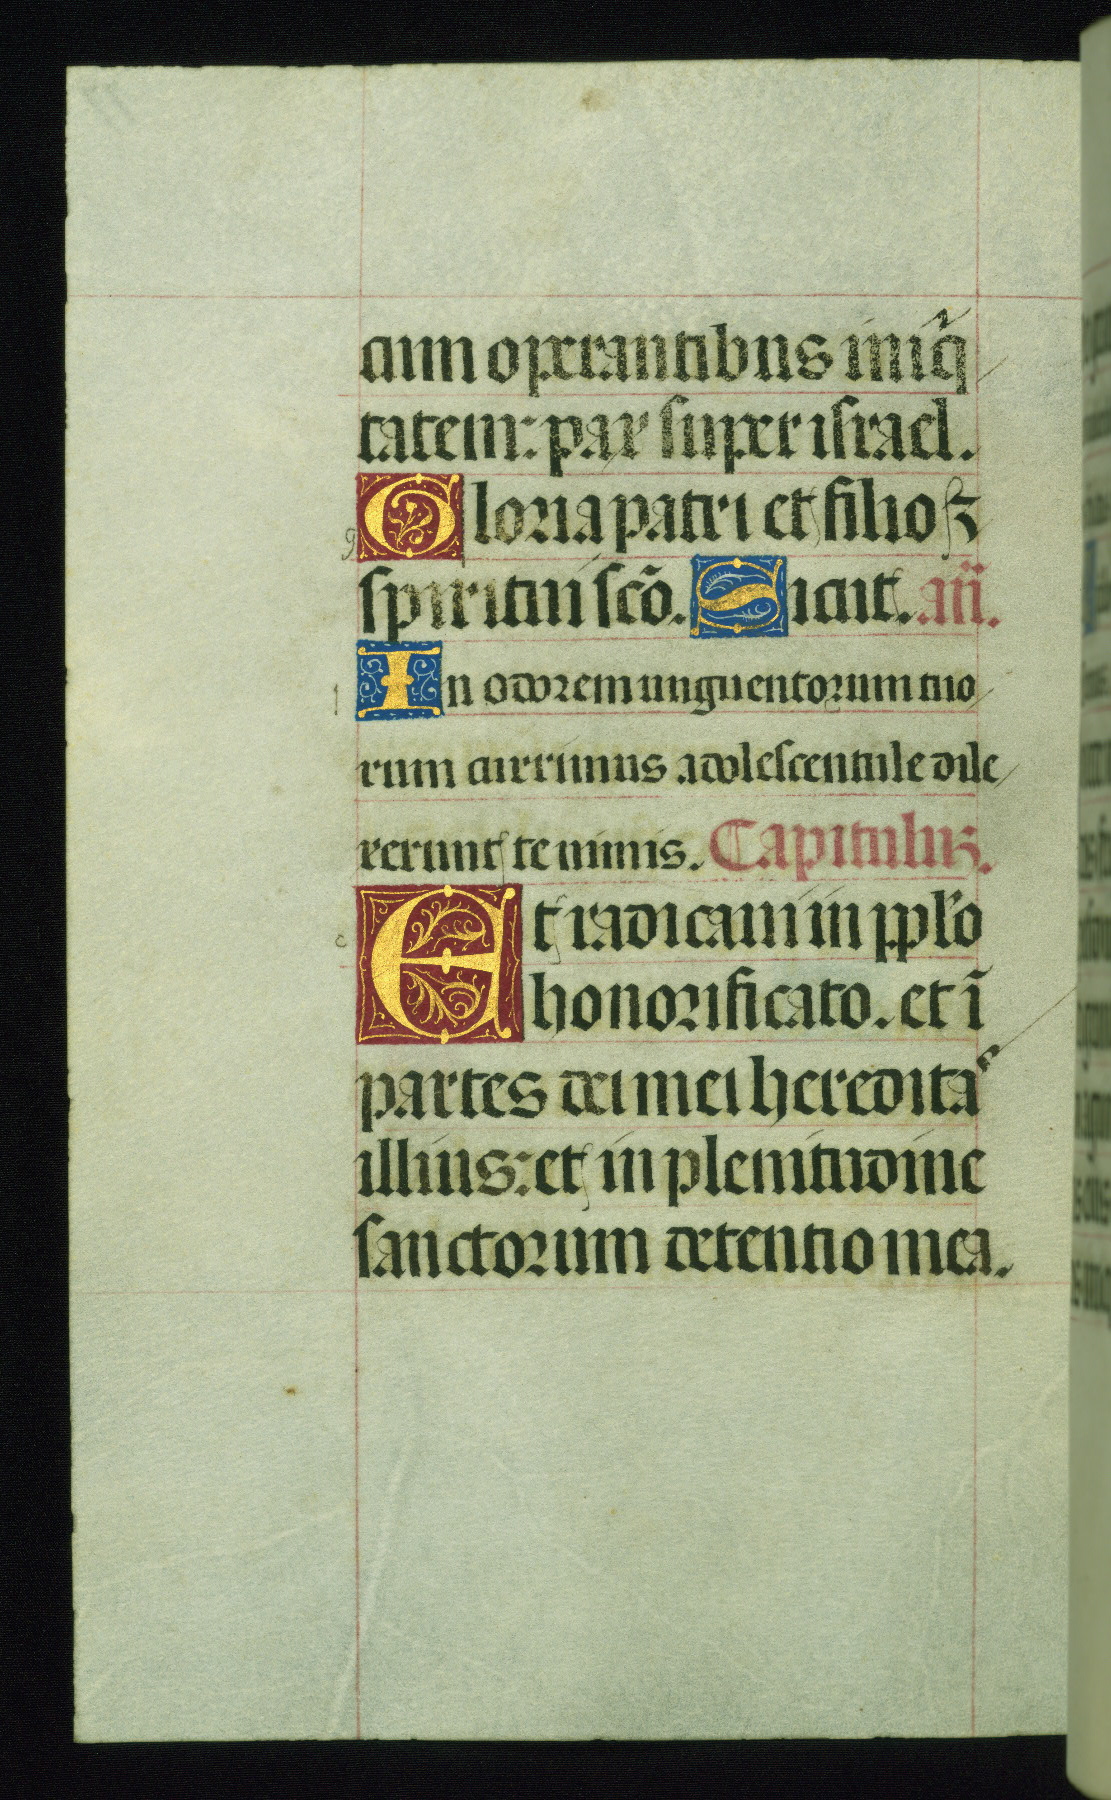 cum operantibus iniq̃
tatem: pax super israel.
Gloria patri et filio ꝫ
spiritui sc̃o. Sicut. añ.
In odorem unguentorum tuo
rum currimus adolescentule dile
xerunt te nimis. Capituluꝫ.
Et radicaui in pp̃lo
honorificato. et ĩ
partes dei mei heredita͛
illius: et in plenitudine
sanctorum detentio mea.